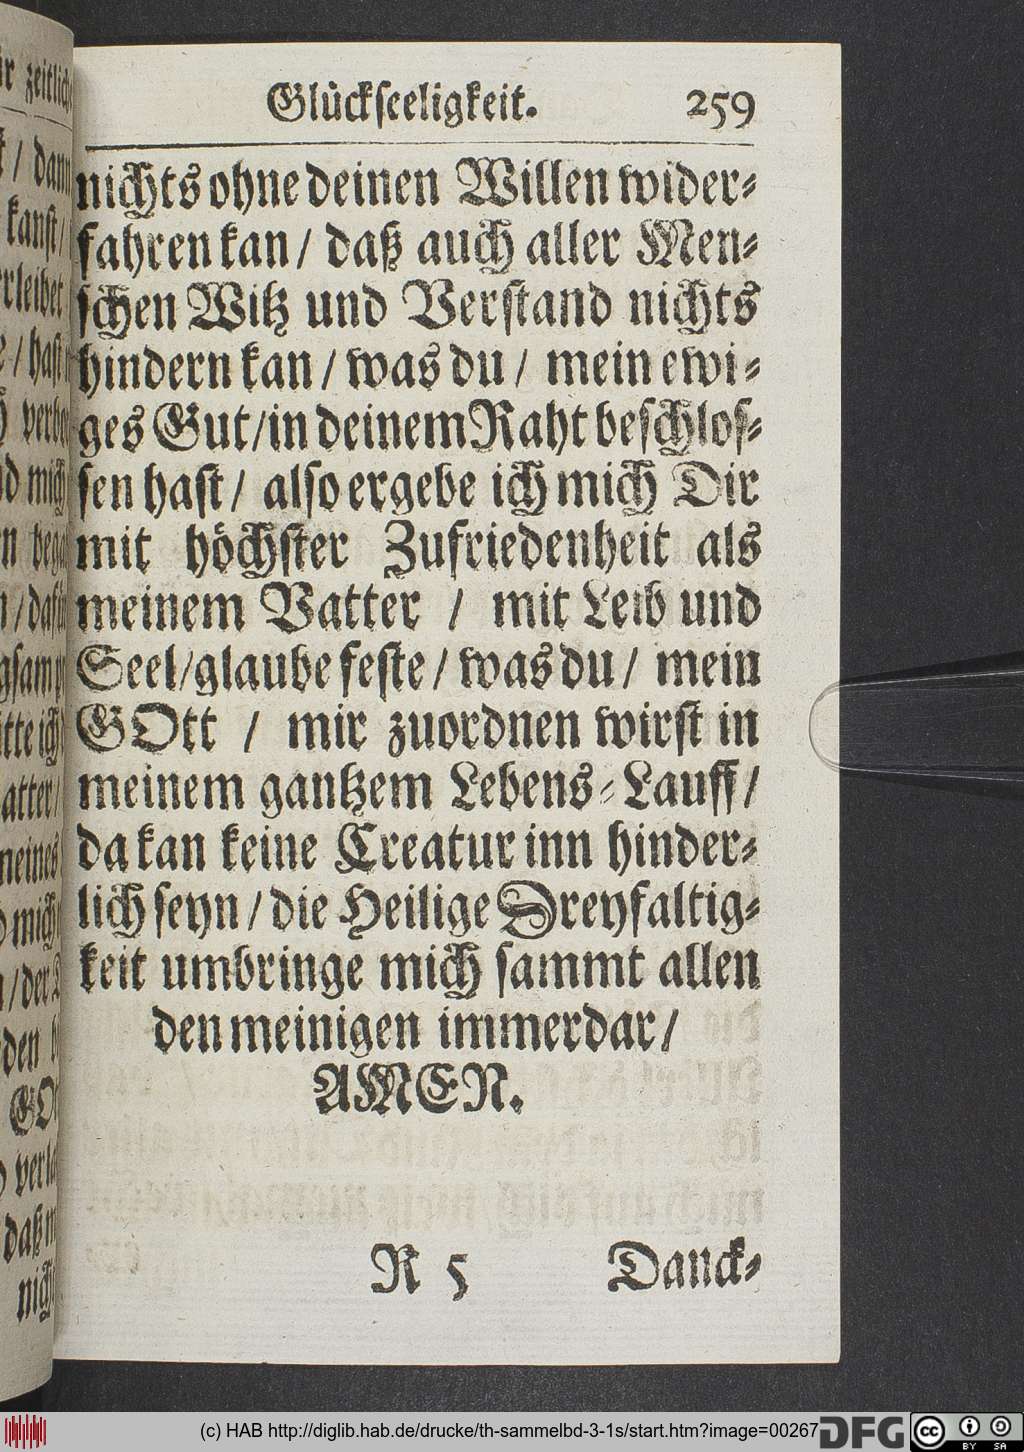 Glückseeligkeit. 259
nichts ohne deinen Willen wider⸗
fahren kan / daß auch aller Men⸗
schen Witz und Verstand nichts
hindern kan / was du / mein ewi⸗
ges Gut / in deinem Raht beschlos⸗
sen hast / also ergebe ich mich Dir
mit höchster Zufriedenheit als
meinem Vatter / mit Leib und
Seel / glaube feste / was du / mein
GOtt / mir zuordnen wirst in
meinem gantzem Lebens⸗Lauff /
da kan keine Creatur inn hinder⸗
lich seyn / die Heilige Dreyfaltig⸗
keit umbringe mich sammt allen
den meinigen immerdar /
AMEN.
R 5 Danck⸗
(c) HAB http://diglib.hab.de/drucke/th-sammelbd-3-1s/start.htm?image=00267
DFG
cc
BY SA